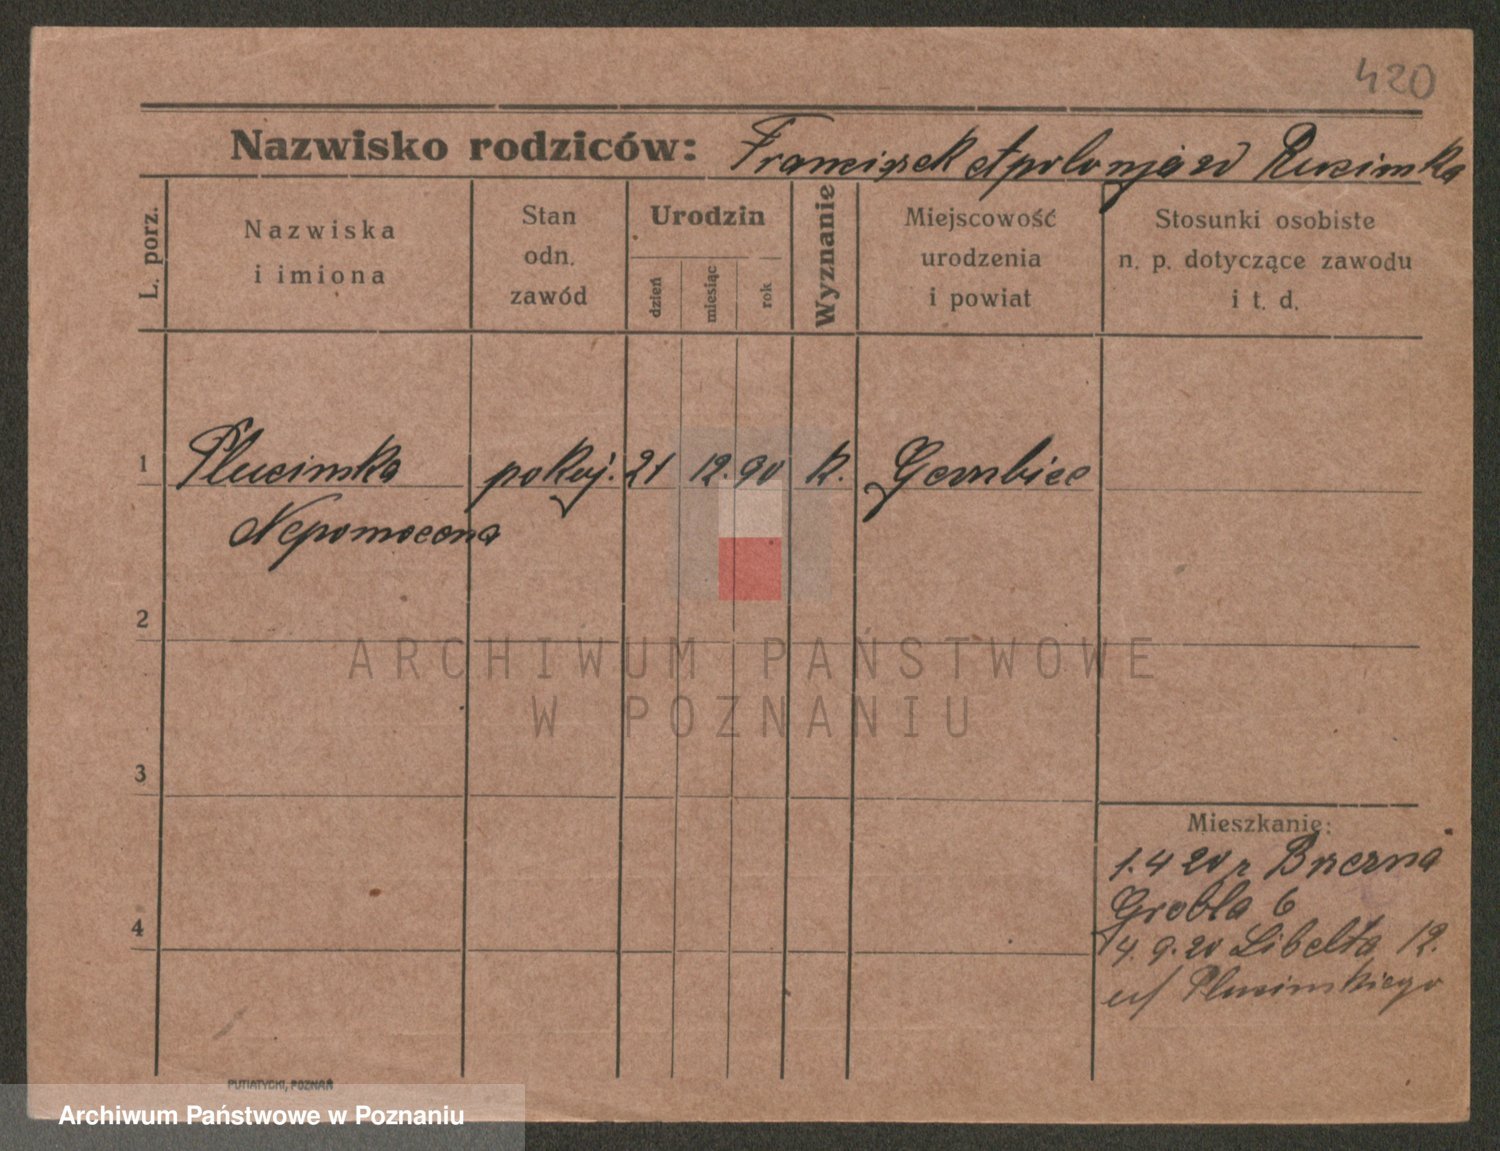 420
Nazwisko rodziców: Franciszek Apolonja zd Rucimska
L. porz.
Nazwiska
i imiona
Stan
odn.
zawód
Urodzin
dzień
miesiąc
rok
Wyznanie
Miejscowość
urodzenia
i powiat
Stosunki osobiste
n. p. dotyczące zawodu
i t. d.
1 Plucimska pokoj. 21 12. 90 k.
Nepomocena
2
ARCHIWUM PAŃSTWOWE
W POZNANIU
3
Mieszkanie:
1.4 20 r Brzezna
Grobla 6
4
4. 9. 20 Libelta 12.
u/ Plucimskiego
PUTIATYCKI, POZNAŃ
Archiwum Państwowe w Poznaniu